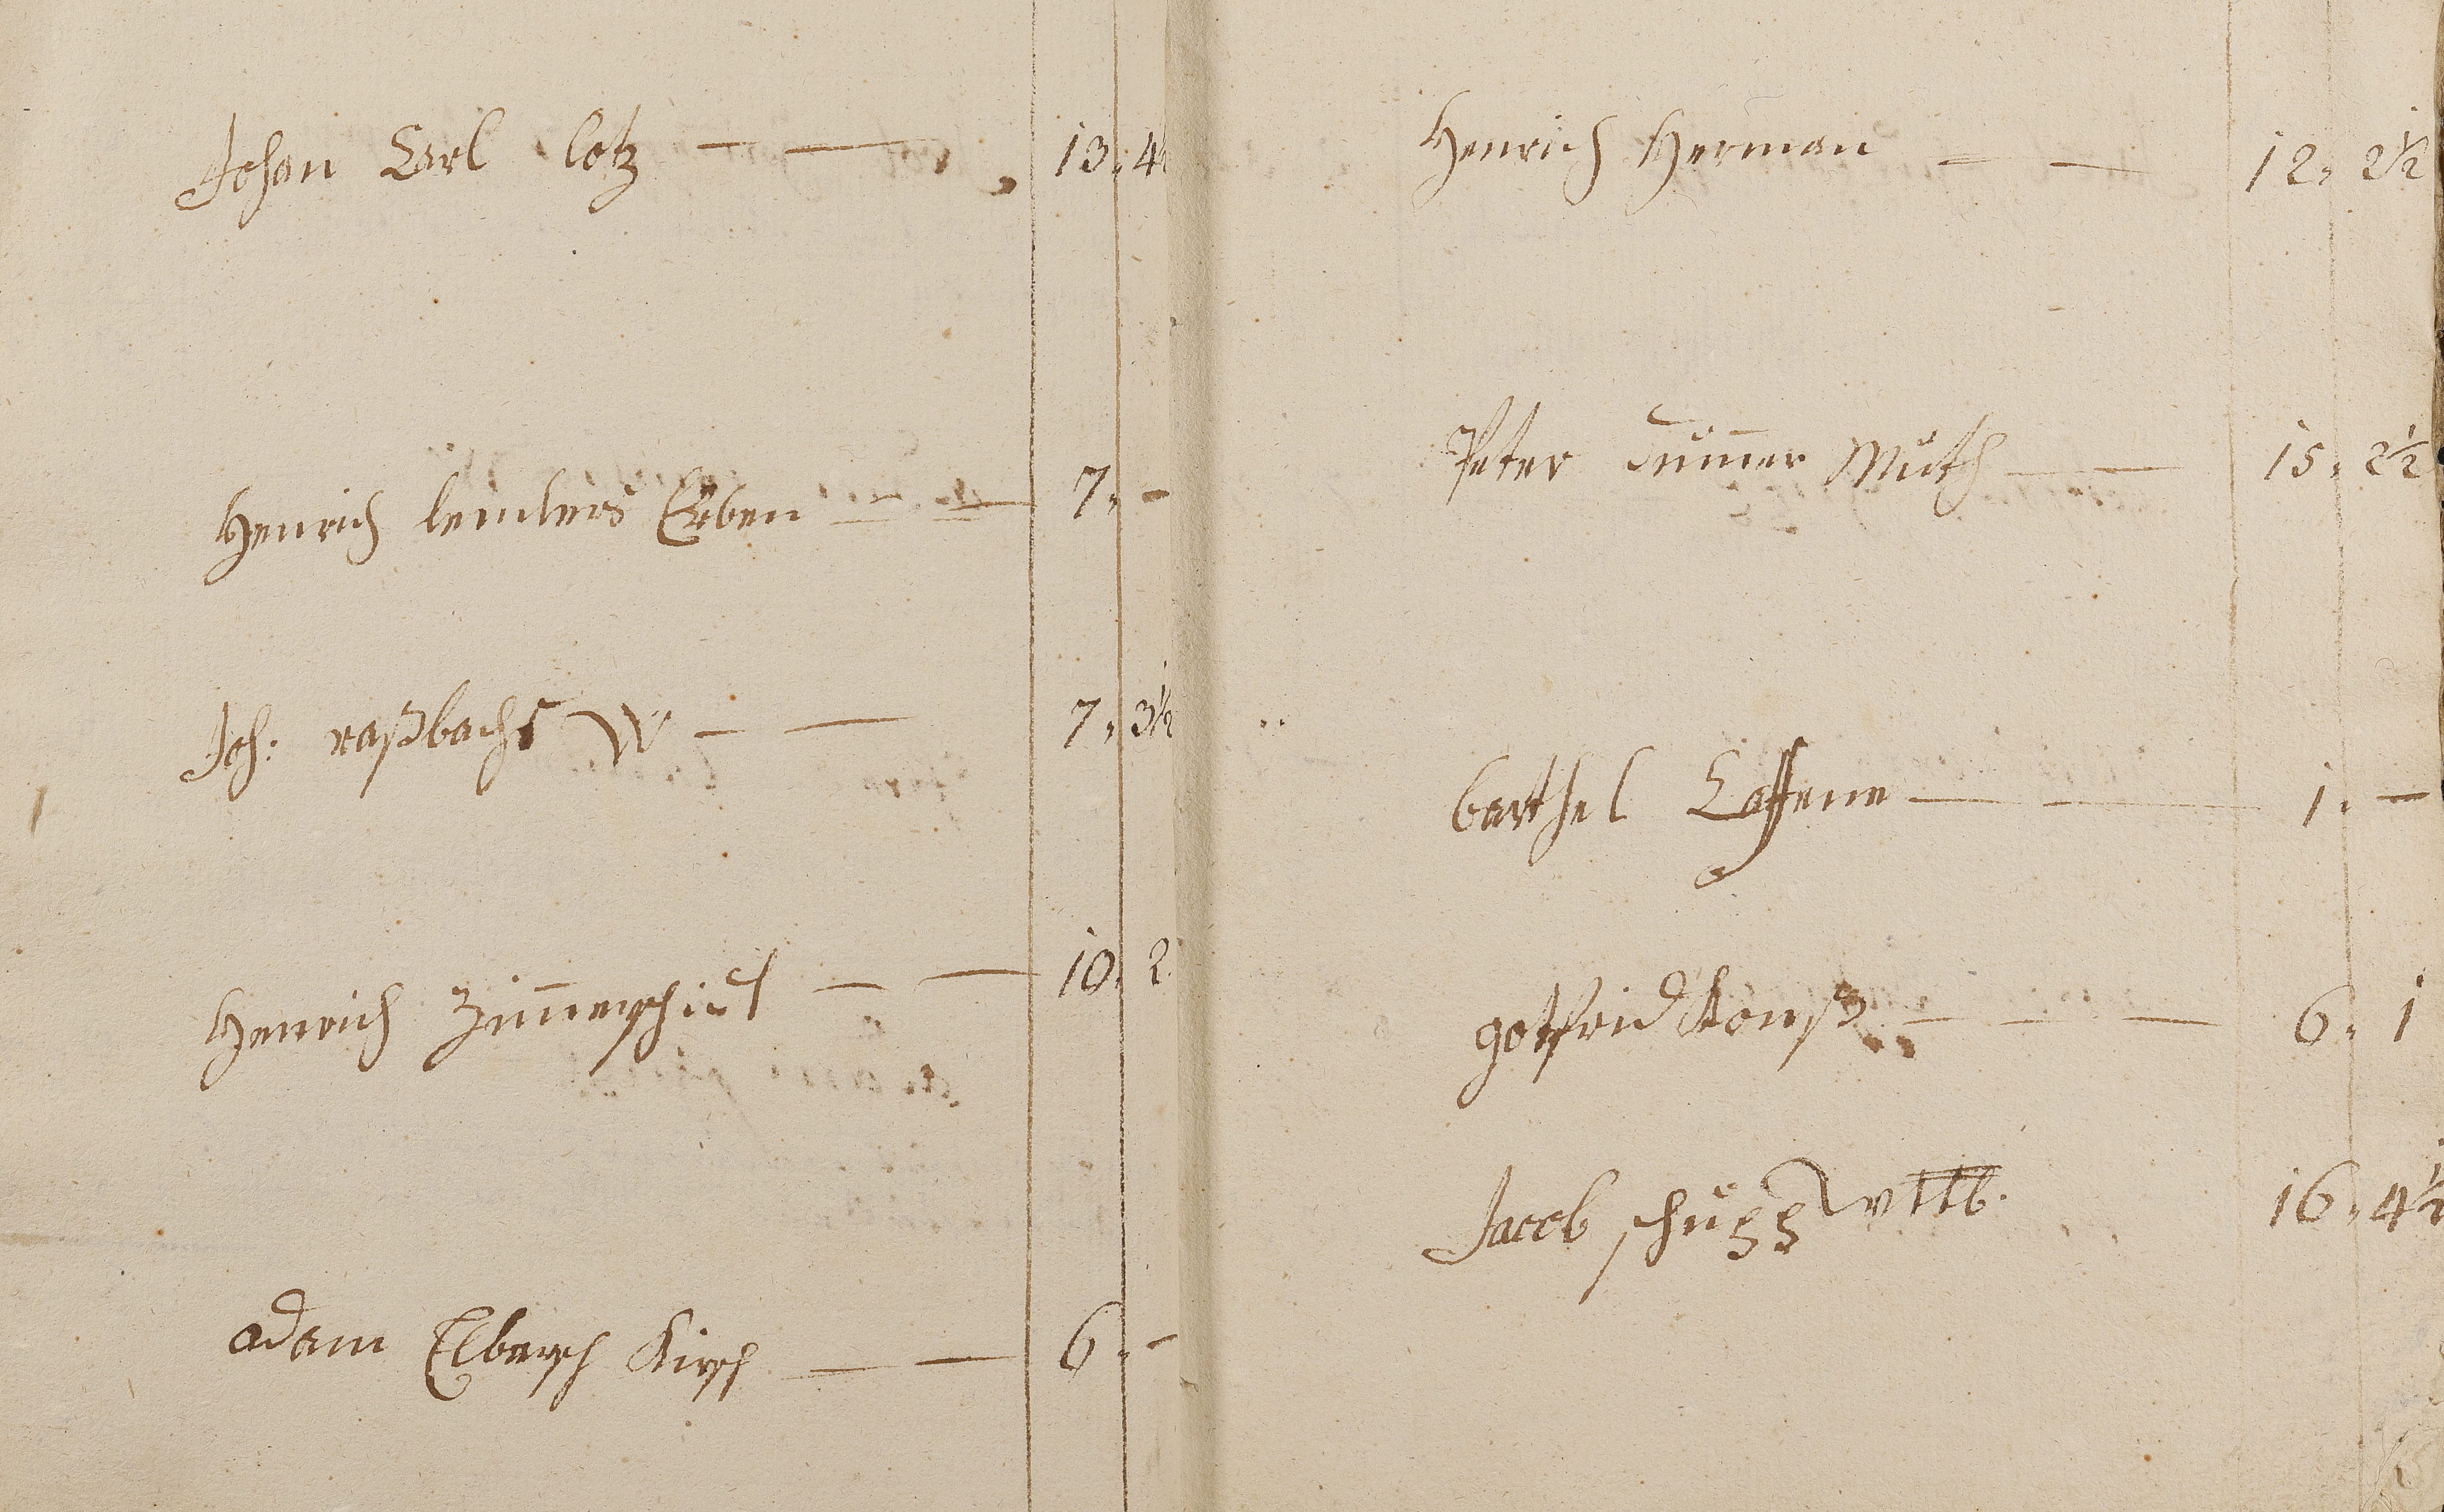 Johan Carl lotz — — 13. 4½
Henrich lemlers Erben — — 7. —
Joh: raßbachs W — — 7. 3½
Henrich Zim̄erschiet — — 10. 2
adam Elbersch Kirsch — — 6. —
Henrich Herman — — 12. 2½
Peter Dum̄er Muth — — 15. 2½
barthel Cossene — — 1. —
gotfrid Konß — — — 6. 1
Jacob schüzz wttb. 16. 4½